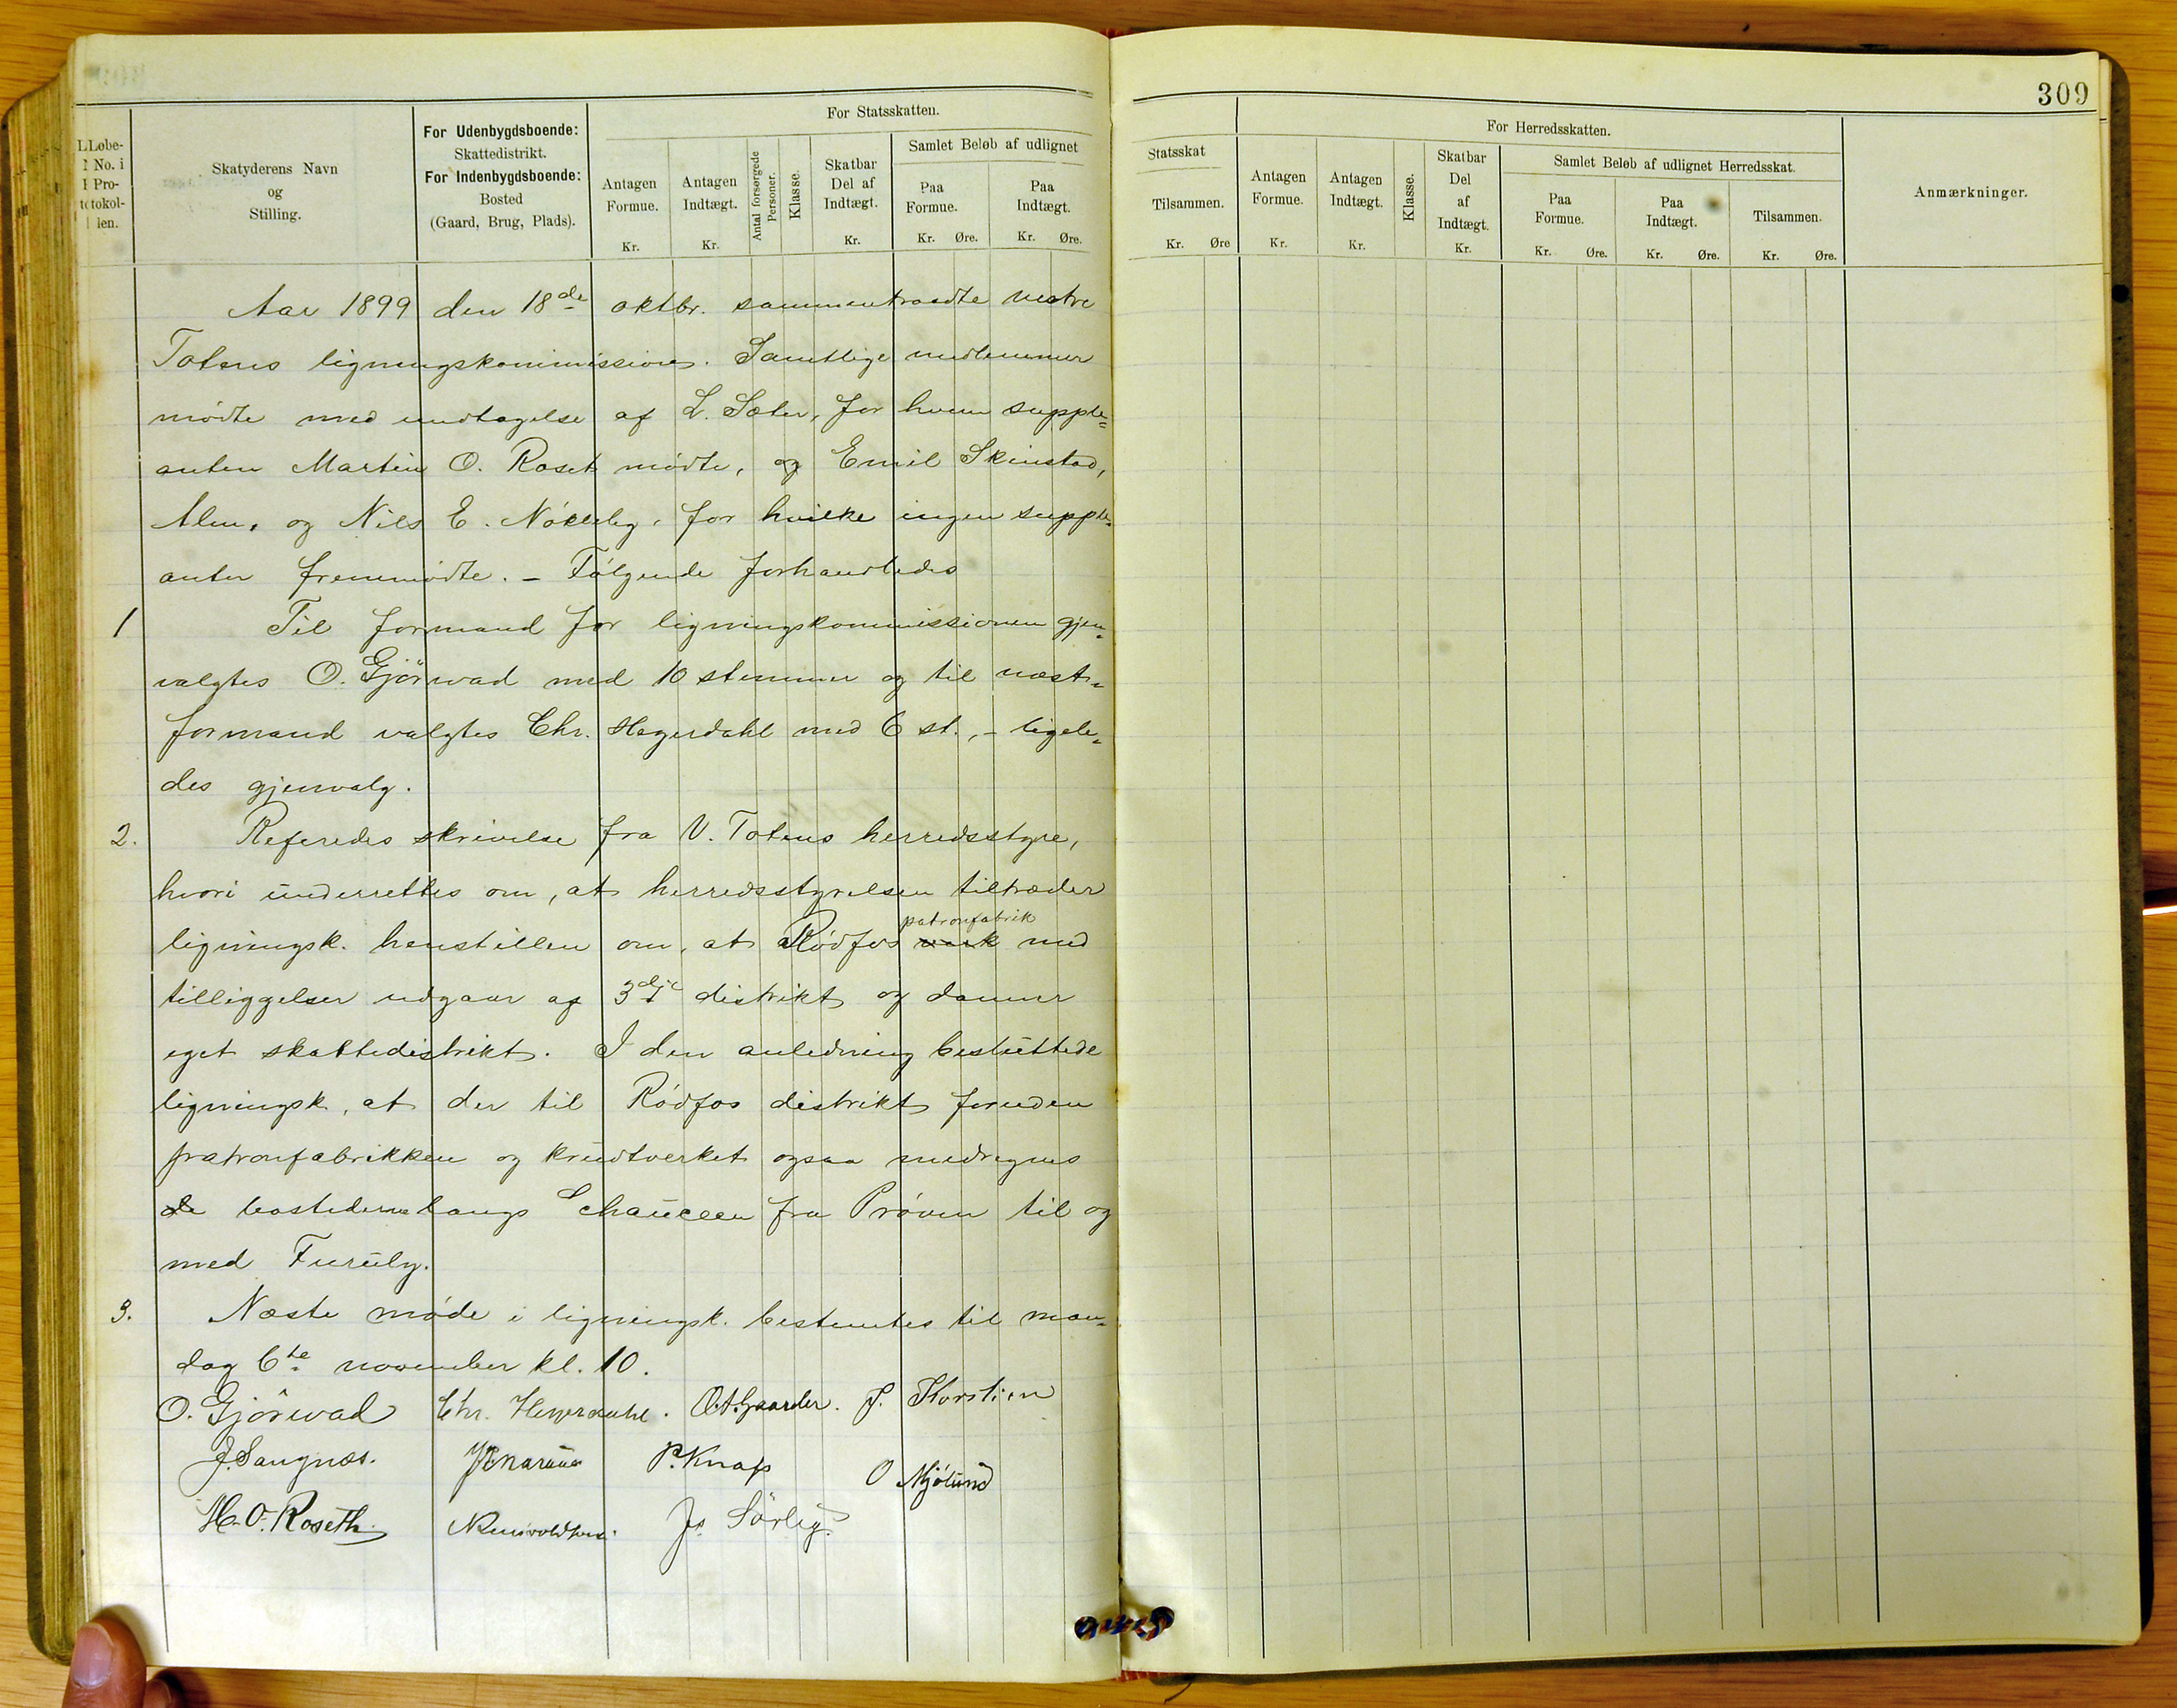 309
Løbe-
No. i
Pro-
tokol-
len.
Skatyderens Navn
og
Stilling.
For Udenbygdsboende:
Skattedistrikt.
For Indenbygdsboende:
Bosted
(Gaard, Brug, Plads).
For Statsskatten.
Antagen
Formue.
Kr.
Antagen
Indtægt.
Kr.
Antal forsørgede
Personer.
Klasse.
Skatbar
Del af
Indtægt.
Kr.
Samlet Beløb af udlignet
Paa
Formue.
Kr. Øre.
Paa
Indtægt.
Kr. Øre.
Statsskat
Tilsammen.
Kr. Øre
For Herredsskatten.
Antagen
Formue.
Kr.
Antagen
Indtægt.
Kr.
Klasse.
Skatbar
Del
af
Indtægt.
Kr.
Samlet Beløb af udlignet Herredsskat.
Paa
Formue.
Kr. Øre.
Paa
Indtægt.
Kr. Øre.
Tilsammen.
Kr. Øre.
Anmærkninger.
Aar 1899 den 18de oktbr. sammentraadte vestre
Totens ligningskommission. Samtlige medlemmer
mødte med undtagelse af L. Sæter, for hvem supple=
anten Martin O. Roset mødte, og Emil Skinstad,
Alm, og Nils E. Nøkleby, for hvilke ingen supple=
anter fremmødte. – Følgende forhandledes
1 Til formand for ligningskommissionen gjen=
valgtes O. Gjörwad med 10 stemmer og til næst=
formand valgtes Chr. Hegerdahl med 6 st., – ligele=
des gjenvalg.
2. Referedes skrivelse fra V. Totens herredsstyre,
hvori underrettes om, at herredsstyrelsen tiltræder
patronfabrik
ligningsk. henstillen om, at Rødfos værk med
tilliggelser udgaar af 3dje distrikt og danner
eget skattedistrikt. I den anledning besluttede
ligningsk, at der til Rødfos distrikt foruden
patronfabrikken og krudtverket ogsaa medregnes
de bostederne langs Chauceen fra Prøven til og
med Furuly.
3. Næste møde i ligningsk. bestemtes til man=
dag 6te november kl. 10.
O. Gjörwad Chr. Heyerdahl. O.A.Gaarder. J. Korstien
J. Sangnæs. P. Knap O Mjølund
M. O. Roseth Js Sörlig.